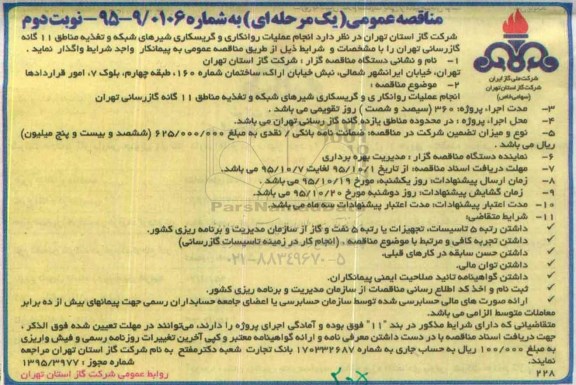 مناقصه عمومی( یک مرحله ای ) به شماره ۹/۰۱۰۶-۹۵- نوبت دوم
شرکت ملی گاز ایران
شرکت گاز استان تهران
(سهامی خاص)
شرکت گاز استان تهران در نظر دارد انجام عملیات روانکاری و گریسکاری شیرهای شبکه و تغذیه مناطق ۱۱ گانه
گازرسانی تهران را با مشخصات و شرایط ذیل از طریق مناقصه عمومی به پیمانکار واجد شرایط واگذار نماید .
۱- نام و نشانی دستگاه مناقصه گزار : شرکت گاز استان تهران
تهران، خیابان ایرانشهر شمالی، نبش خیابان اراک، ساختمان شماره ۱۶۰، طبقه چهارم، بلوک ۷، امور قراردادها
۲- موضوع مناقصه :
انجام عملیات روانکار ی و گریسکاری شیرهای شبکه و تغذیه مناطق ۱۱ گانه گازرسانی تهران
۳- مدت اجراء پروژه: ۳۶۰ (سیصد و شصت ) روز تقویمی می باشد .
۴- محل اجراء پروژه : در محدوده مناطق یازده گانه گاز رسانی تهران می باشد.
۵- نوع و میزان تضمین شرکت در مناقصه: ضمانت نامه بانکی / نقدی به مبلغ ۶۲۵/۰۰۰/۰۰۰ (ششصد و بیست و پنج میلیون)
ریال می باشد .
۶- نماینده دستگاه مناقصه گزار : مدیریت بهره برداری
۷- مهلت دریافت اسناد مناقصه: از تاریخ ۹۵/۱۰/۱ لغایت ۹۵/۱۰/۷ می باشد.
۸- زمان ارسال پیشنهادات: روز یکشنبه، مورخ ۹۵/۱۰/۱۹ می باشد .
۹- زمان گشایش پیشنهادات: روز دوشنبه مورخ ۹۵/۱۰/۲۰ می باشد .
۱۰- مدت اعتبار پیشنهادات: مدت اعتبار پیشنهادات سه ماه می باشد.
۱۱- شرایط متقاضی:
✓ داشتن رتبه ۵ تاسیسات، تجهیزات یا رتبه ۵ نفت و گاز از سازمان مدیریت و برنامه ریزی کشور.
✓ داشتن تجربه کافی و مرتبط با موضوع مناقصه . (انجام کار در زمینه تاسیسات گازرسانی)
✓ داشتن حسن سابقه در کارهای قبلی.
✓ داشتن توان مالی.
✓ داشتن گواهینامه تائید صلاحیت ایمنی پیمانکاران.
✓ ثبت نام و اخذ کد اطلاع رسانی مناقصات از سازمان مدیریت و برنامه ریزی کشور.
✓ ارائه صورت های مالی حسابرسی شده توسط سازمان حسابرسی یا اعضای جامعه حسابداران رسمی جهت پیمانهای بیش از ده برابر
معاملات متوسط الزامی می باشد.
متقاضیانی که دارای شرایط مذکور در بند "۱۱" فوق بوده و آمادگی اجرای پروژه را دارند، می‌توانند در مهلت تعیین شده فوق الذکر ،
جهت دریافت اسناد مناقصه با در دست داشتن معرفی نامه و ارائه گواهینامه معتبر و کپی آخرین تغییرات روزنامه رسمی و فیش واریزی
به مبلغ ۱۰۰/۰۰۰ ریال به حساب جاری به شماره ۱۷۰۳۳۲۶۸۷ بانک تجارت شعبه دکتر مفتح به نام شرکت گاز استان تهران مراجعه
نمایند.
شماره مجوز : ۱۳۹۵/۳۹۷۷
روابط عمومی شرکت گاز استان تهران
۲۲۸
ParsNamadData
۰۲۱-۸۸۳۴۹۶۷۰-۵